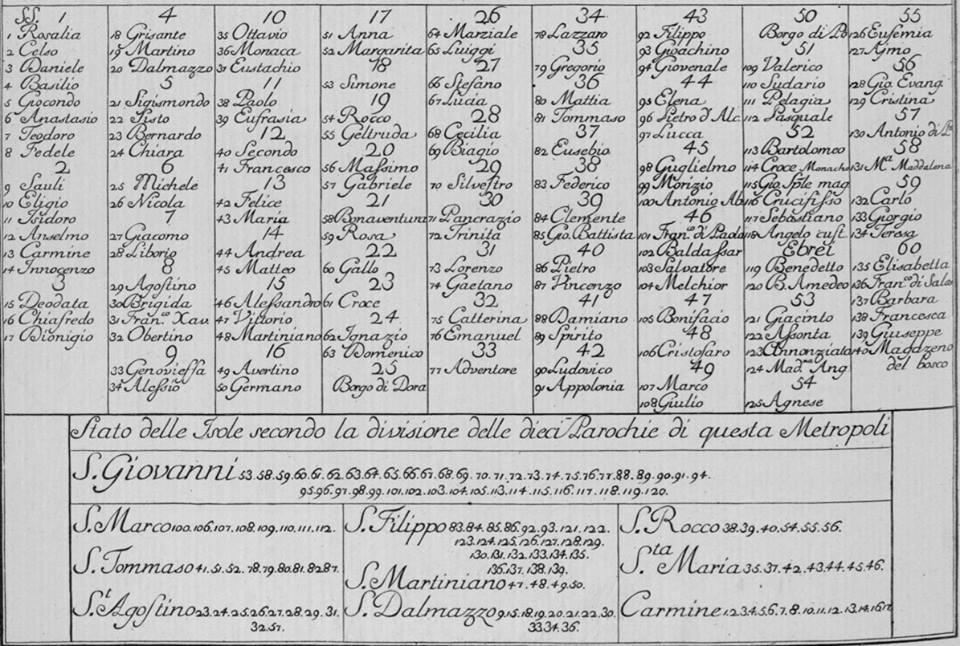 SS. 1
1 Rosalia
2 Celso
3 Daniele
4 Basilio
5 Giocondo
6 Anastasio
7 Teodoro
8 Fedele
2
9 Sauli
10 Eligio
11 Isidoro
12 Anselmo
13 Carmine
14 Innocenzo
3
15 Deodata
16 Chiafredo
17 Dionigio
4
18 Grisante
19 Martino
20 Dalmazzo
5
21 Sigismondo
22 Sisto
23 Bernardo
24 Chiara
6
25 Michele
26 Nicola
7
27 Giacomo
28 Liborio
8
29 Agostino
30 Brigida
31 Fran.co Xav.
32 Obertino
9
33 Genovieffa
34 Alessio
10
35 Ottavio
36 Monaca
37 Eustachio
11
38 Paolo
39 Eufrasia
12
40 Secondo
41 Francesco
13
42 Felice
43 Maria
14
44 Andrea
45 Matteo
15
46 Alessandro
47 Vittorio
48 Martiniano
16
49 Avertino
50 Germano
17
51 Anna
52 Margarita
18
53 Simone
19
54 Rocco
55 Geltruda
20
56 Massimo
57 Gabriele
21
58 Bonaventura
59 Rosa
22
60 Gallo
23
61 Croce
24
62 Ignazio
63 Domenico
25
Borgo di Dora
26
64 Marziale
65 Luiggi
27
66 Stefano
67 Lucia
28
68 Cecilia
69 Biagio
29
70 Silvestro
30
71 Pancrazio
72 Trinita
31
73 Lorenzo
74 Gaetano
32
75 Catterina
76 Emanuel
33
77 Adventore
34
78 Lazzaro
35
79 Gregorio
36
80 Mattia
81 Tommaso
37
82 Eusebio
38
83 Federico
39
84 Clemente
85 Gio. Battista
40
86 Pietro
87 Vincenzo
41
88 Damiano
89 Spirito
42
90 Ludovico
91 Appolonia
43
92 Filippo
93 Gioachino
94 Giovenale
44
95 Elena
96 Pietro d'Alc.
97 Lucca
45
98 Guglielmo
99 Morizio
100 Antonio Ab.
46
101 Fran.co di Paola
102 Baldassar
103 Salvatore
104 Melchior
47
105 Bonifacio
48
106 Cristofaro
49
107 Marco
108 Giulio
50
Borgo di Pò
51
109 Valerico
110 Sudario
111 Pelagia
112 Pasquale
52
113 Bartolomeo
114 Croce Monache
115 Gio. Sple mag
116 Crucifisso
117 Sebastiano
118 Angelo cust.
Ebrei
119 Benedetto
120 B. Amedeo
53
121 Giacinto
122 Assonta
123 Annonziata
124 Mad.na Ang
54
125 Agnese
55
126 Eufemia
127 Aimo
56
128 Gio. Evang.
129 Cristina
57
130 Antonio di P.
58
131 M.a Maddalena
59
132 Carlo
133 Giorgio
134 Teresa
60
135 Elisabetta
136 Fran.co di Sales
137 Barbara
138 Francesca
139 Giuseppe
140 Magazeno
del bosco
Stato delle Isole secondo la divisione delle dieci Parochie di questa Metropoli
S. Giovanni 53.58.59.60.61.62.63.64.65.66.67.68.69.70.71.72.73.74.75.76.77.88.89.90.91.94.
95.96.97.98.99.101.102.103.104.105.113.114.115.116.117.118.119.120.
S. Marco 100.106.107.108.109.110.111.112.
S. Tommaso 41.51.52.78.79.80.81.82.87.
S.t Agostino 23.24.25.26.27.28.29.31.
32.57.
S. Filippo 83.84.85.86.92.93.121.122.
123.124.125.126.127.128.129.
130.131.132.133.134.135.
136.137.138.139.
S. Martiniano 47.48.49.50.
S. Dalmazzo 9.15.18.19.20.21.22.30.
33.34.36.
S. Rocco 38.39.40.54.55.56.
S.ta Maria 35.37.42.43.44.45.46.
Carmine 1.2.3.4.5.6.7.8.10.11.12.13.14.16.17.